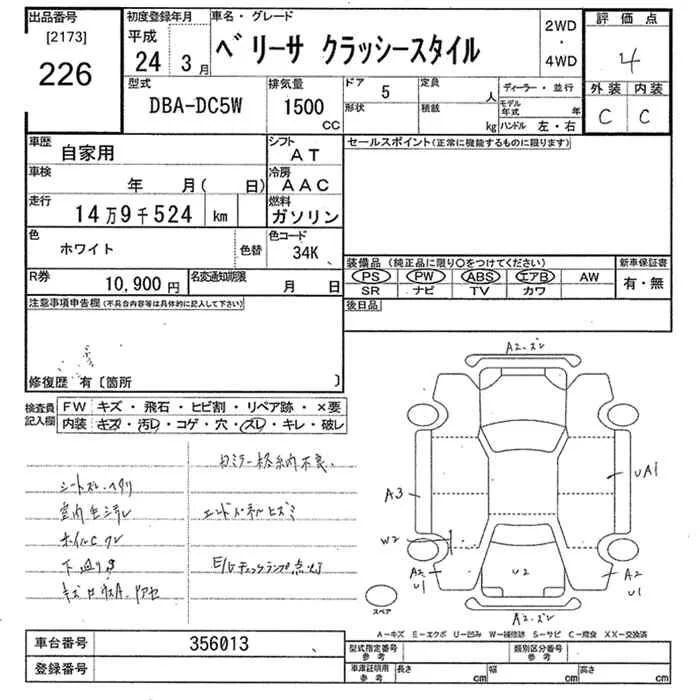 出品番号
[2173]
226
初度登録年月
平成
24 3月
車名・グレード
ベリーサ クラッシースタイル
2WD
・
4WD
評価点
4
外装 内装
C C
型式
DBA-DC5W
排気量
1500
CC
ドア 5
定員 人
形状
積載 kg
ディーラー・並行
モデル年式 年
ハンドル 左・右
車歴
自家用
シフト
AT
車検
年 月( 日)
冷房
AAC
走行
14万9千524 km
燃料
ガソリン
色
ホワイト
色替
色コード
34K
R券
10,900円
名変通知期限
月 日
セールスポイント(正常に機能するものに限ります)
装備品(純正品に限り○をつけてください)
新車保証書
PS PW ABS エアB AW
有・無
SR ナビ TV カワ
後日品
注意事項申告欄(不具合内容等は具体的に記入して下さい)
修復歴 有〔箇所 〕
検査員記入欄
FW キズ・飛石・ヒビ割・リペア跡・×要
内装 キズ・汚レ・コゲ・穴・ズレ・キレ・破レ
ロミラー格納不良
シートズレ・ヘタリ
エンドパネルヒズミ
ホイルC
下廻りサ
E/Gチェックランプ点灯
A2・ズレ
A3
UA1
W2
A2
U1
U2
A2
U1
A2・ズレ
スペア
A-キズ E-エクボ U-凹み W-補修跡 S-サビ C-腐食 XX-交換済
車台番号
356013
登録番号
型式指定番号
参考
類別区分番号
参考
車庫証明用
参考
長さ cm
幅 cm
高さ cm